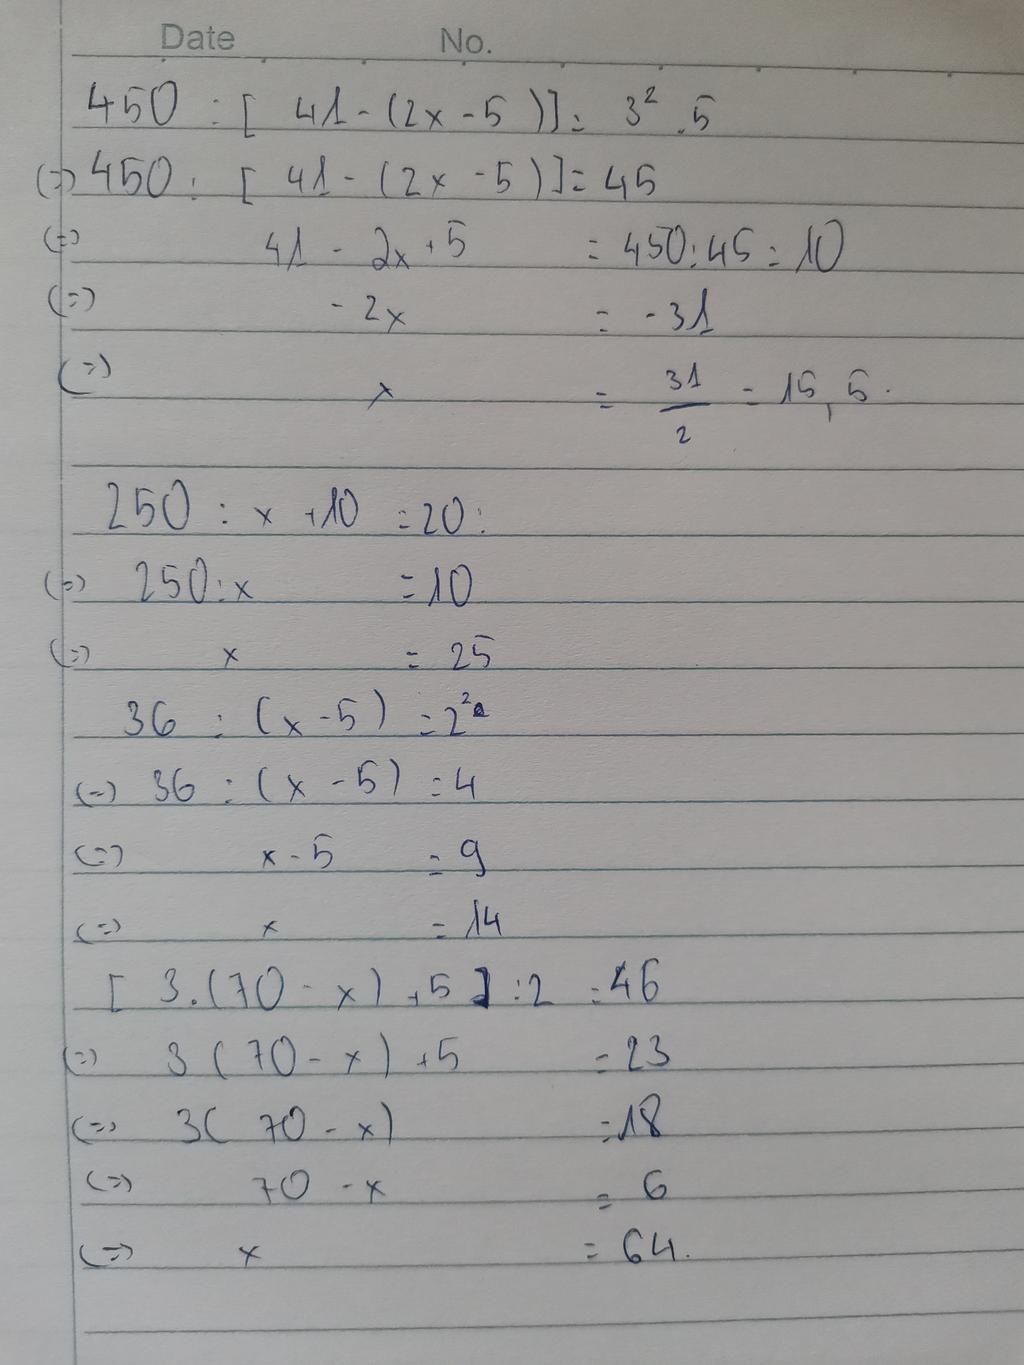 Date No.
450 : [ 41 - (2x - 5 )] = 3² . 5
(=) 450 : [ 41 - (2x - 5) ] = 45
(=) 41 - 2x + 5 = 450 : 45 = 10
(=) - 2x = - 31
(=) x = 31/2 = 15,5.
250 : x + 10 = 20 :
(=) 250 : x = 10
(=) x = 25
36 : (x - 5) = 2²
(=) 36 : (x - 5) = 4
(=) x - 5 = 9
(=) x = 14
[ 3.(70 - x) + 5 ] : 2 = 46
(=) 3 ( 70 - x ) + 5 = 23
(=) 3( 70 - x) = 18
(=) 70 - x = 6
(=) x = 64.